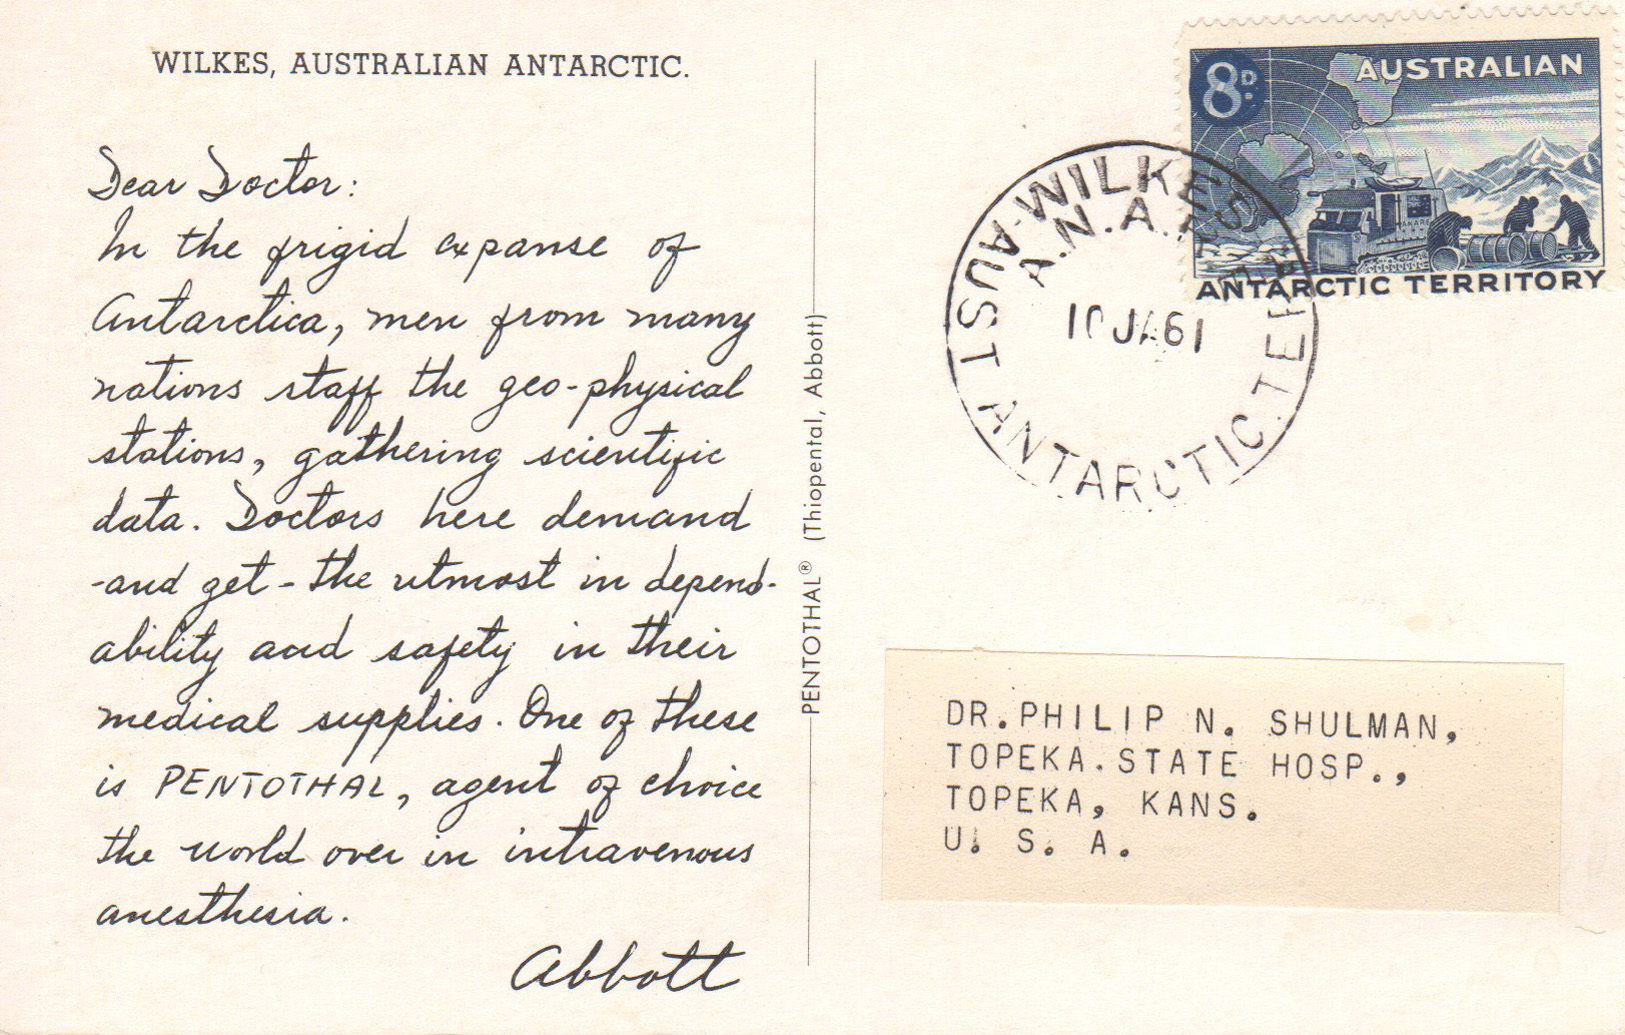 WILKES, AUSTRALIAN ANTARCTIC.
Dear Doctor:
In the frigid expanse of
Antarctica, men from many
nations staff the geo-physical
stations, gathering scientific
data. Doctors here demand
-and get - the utmost in depend-
ability and safety in their
medical supplies. One of these
is PENTOTHAL, agent of choice
the world over in intravenous
anesthesia.
Abbott
PENTOTHAL® (Thiopental, Abbott)
8D.
AUSTRALIAN
ANARE
ANTARCTIC TERRITORY
WILKES
A.N.A.R.E.
10 JA 61
AUST ANTARCTIC.TER
DR.PHILIP N. SHULMAN,
TOPEKA.STATE HOSP.,
TOPEKA, KANS.
U. S. A.